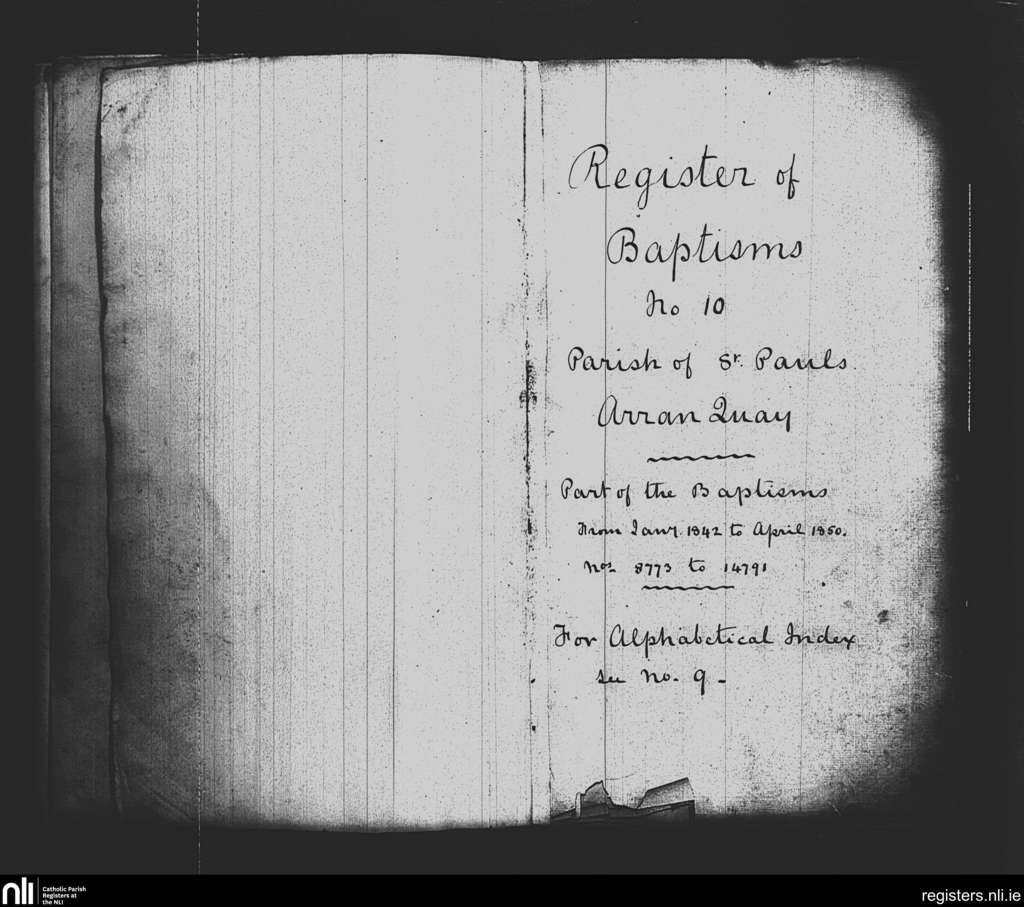 Register of
Baptisms
No 10
Parish of St. Pauls
Arran Quay
Part of the Baptisms
From Jany. 1842 to April 1850.
Nos. 8773 to 14791
For Alphabetical Index
see No. 9 -
nli
Catholic Parish
Registers at
the NLI
registers.nli.ie